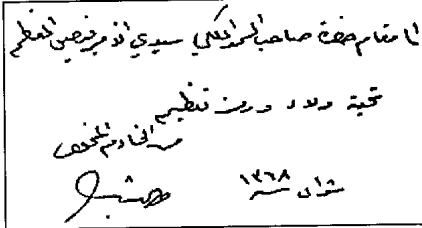 الى مقام حضرة صاحب السمو الملكي سيدي الامير فيصل المعظم
تحية ولاء ورمز تعظيم
من الخادم المخلص
شوال سنة ١٣٦٨